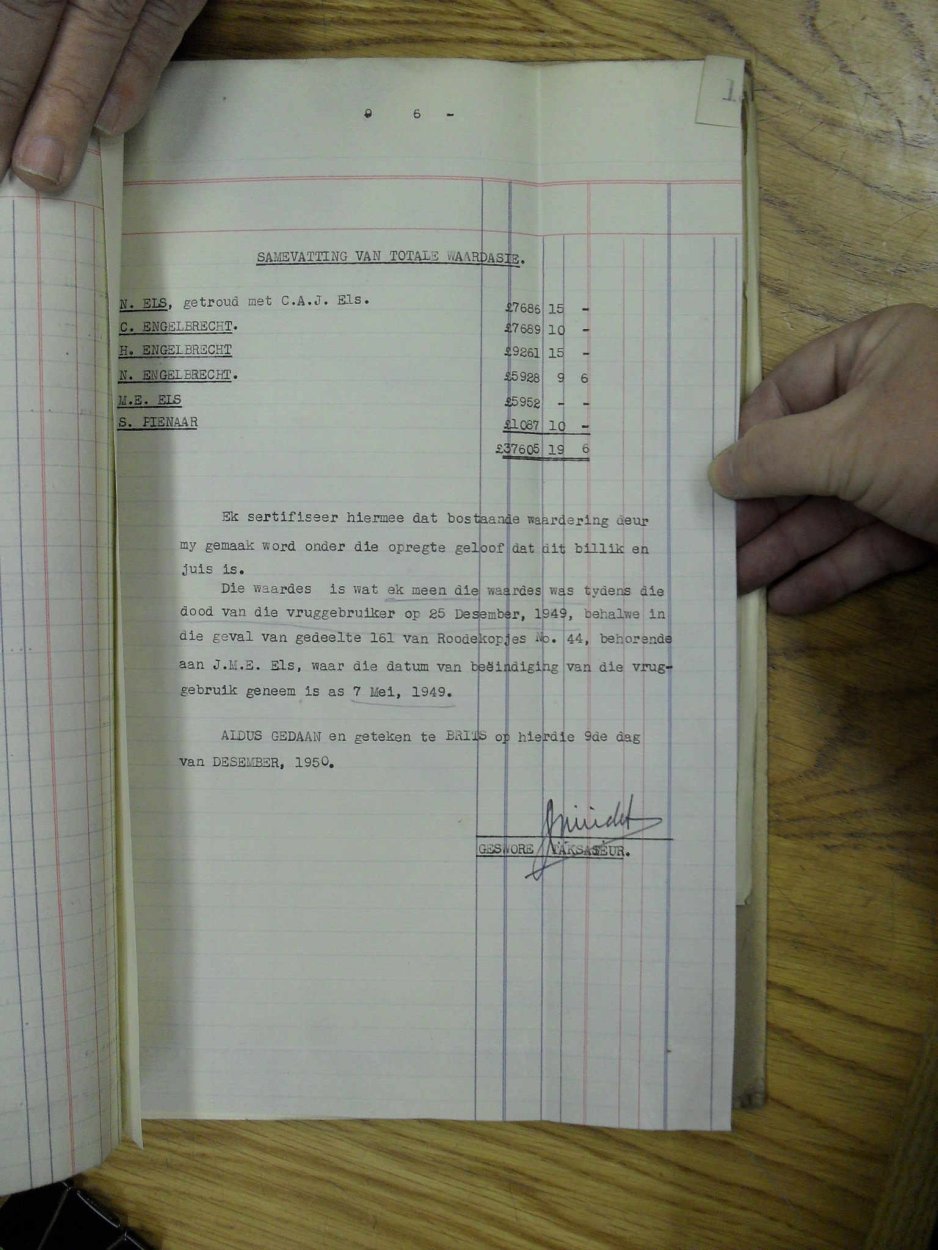 - 6 -
SAMEVATTING VAN TOTALE WAARDASIE.
N. ELS, getroud met C.A.J. Els. £7686 15 -
C. ENGELBRECHT. £7689 10 -
H. ENGELBRECHT £9261 15 -
N. ENGELBRECHT. £5928 9 6
M.E. ELS £5952 - -
S. PIENAAR £1087 10 -
£37605 19 6
Ek sertifiseer hiermee dat bostaande waardering deur
my gemaak word onder die opregte geloof dat dit billik en
juis is.
Die waardes is wat ek meen die waardes was tydens die
dood van die vruggebruiker op 25 Desember, 1949, behalwe in
die geval van gedeelte 161 van Roodekopjes No. 44, behorende
aan J.M.E. Els, waar die datum van beëindiging van die vrug-
gebruik geneem is as 7 Mei, 1949.
ALDUS GEDAAN en geteken te BRITS op hierdie 9de dag
van DESEMBER, 1950.
GESWORE TAKSATEUR.